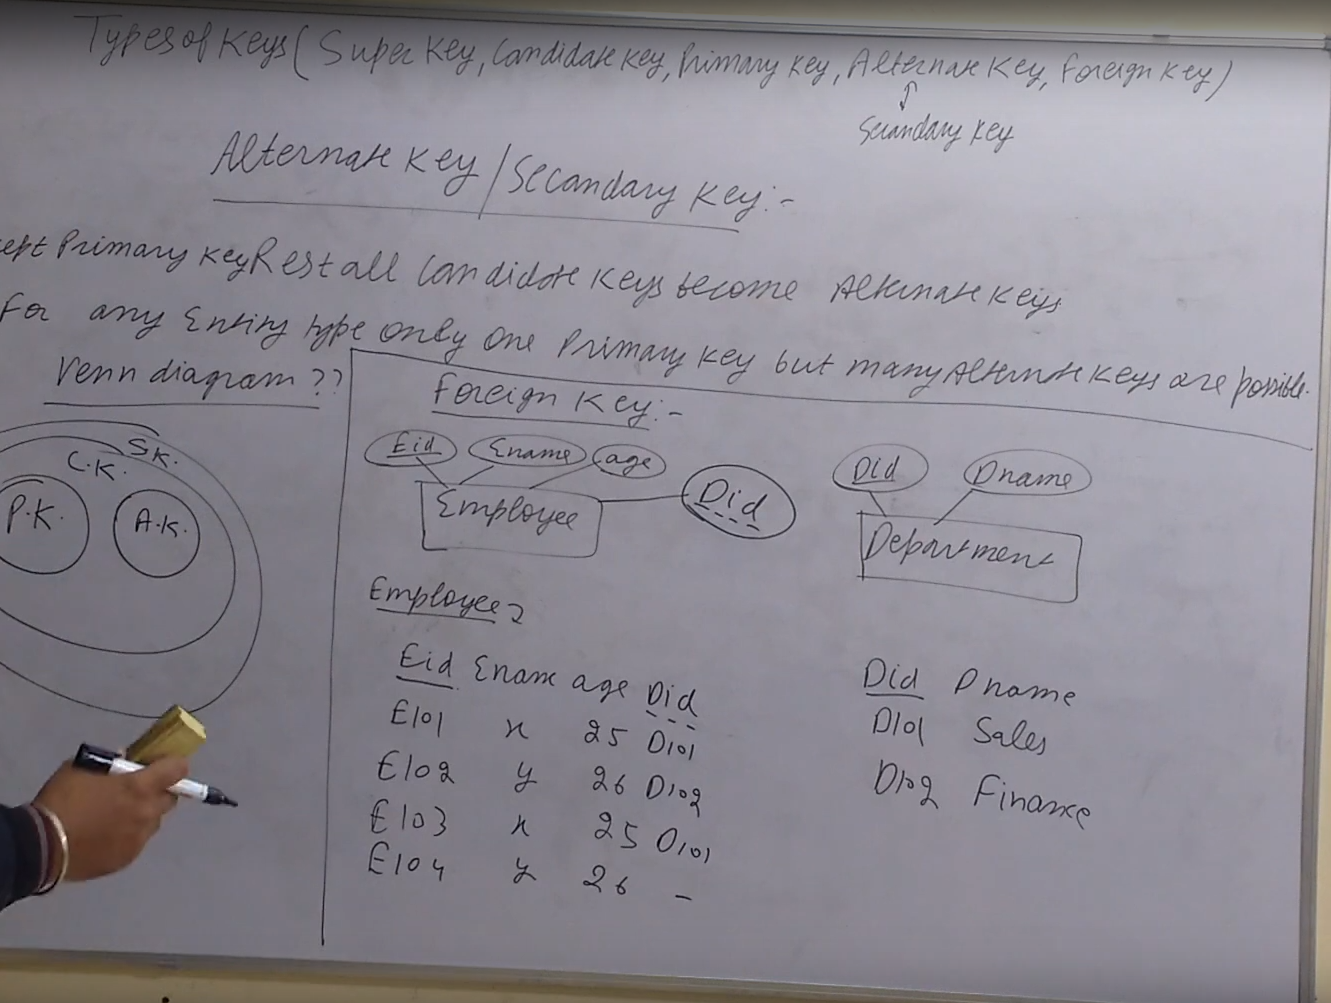 Types of Keys ( Super Key, Candidate Key, Primary Key, Alternate Key, Foreign Key )
Secandary Key
Alternate Key / Secandary Key :-
ept Primary Key Rest all Candidate Keys become Alternate Keys
For any Entity type only one Primary Key but many Alternate Keys are possible.
Venn diagram ??
Foreign Key :-
S.K.
C.K.
P.K.
A.K.
Eid Ename age Did
Employee
Did Dname
Department
Employee
Eid Ename age Did
E101 x 25 D101
E102 y 26 D102
E103 x 25 D101
E104 y 26 -
Did Dname
D101 Sales
D102 Finance